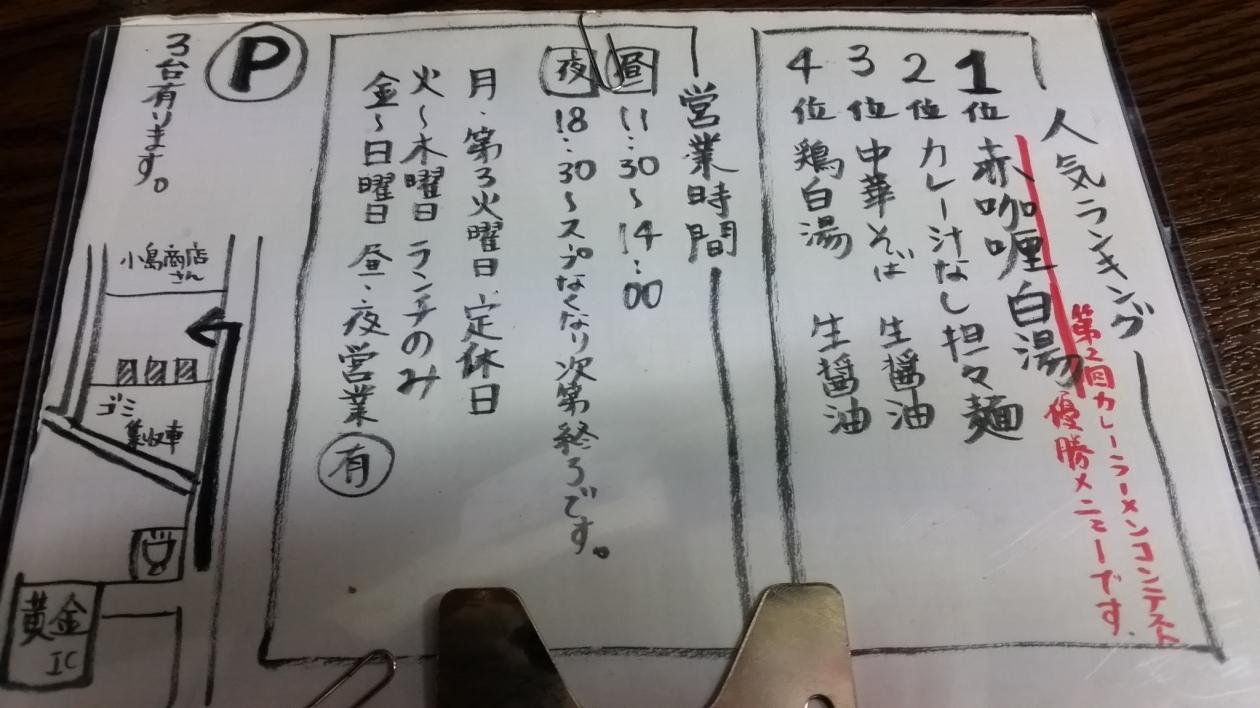 人気ランキング
第2回カレーラーメンコンテスト
優勝メニューです。
1位 赤咖喱白湯
2位 カレー汁なし担々麺
3位 中華そば 生醤油
4位 鶏白湯 生醤油
営業時間
昼 11:30〜14:00
夜 18:30〜スープなくなり次第終了です。
月・第3火曜日 定休日
火〜木曜日 ランチのみ
金〜日曜日 昼・夜営業有
P
3台有ります。
小島商店さん
ゴミ
集収車
黄金
IC